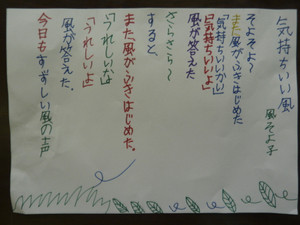 気持ちいい風
風そよ子
そよそよ〜
また風がふきはじめた
「気持ちいいかい」
「気持ちいいよ」
風が答えた
さらさら〜
すると、
また風がふきはじめた。
「うれしいかは」
「うれしいよ」
風が答えた。
今日もすずしい風の声